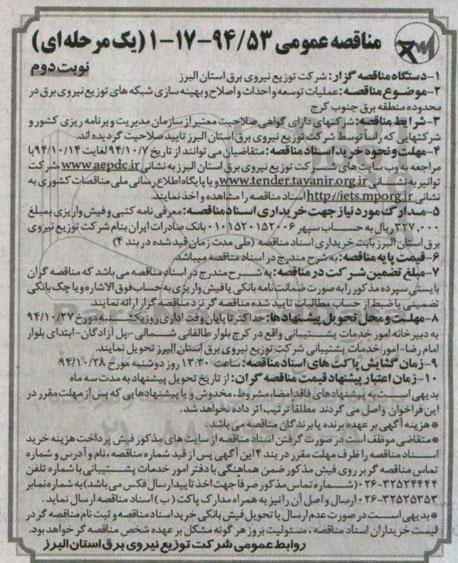 مناقصه عمومی ۹۴/۵۳-۱۷-۱ (یک مرحله ای)
نوبت دوم
۱-دستگاه مناقصه گزار: شرکت توزیع نیروی برق استان البرز
۲-موضوع مناقصه: عملیات توسعه و احداث و اصلاح و بهینه سازی شبکه های توزیع نیروی برق در
محدوده منطقه برق جنوب کرج
۳-شرایط مناقصه: شرکتهای دارای گواهی صلاحیت معتبر از سازمان مدیریت و برنامه ریزی کشور و
شرکتهایی که راسا توسط شرکت توزیع نیروی برق استان البرز تایید صلاحیت گردیده اند.
۴-مهلت و نحوه خرید اسناد مناقصه: متقاضیان می توانند از تاریخ ۹۴/۱۰/۷ لغایت ۹۴/۱۰/۱۴ با
مراجعه به وب سایت های شرکت توزیع نیروی برق استان البرز به نشانی www.aepdc.ir شرکت
توانیر به نشانی www.tender.tavanir.org.ir و یا پایگاه اطلاع رسانی ملی مناقصات کشوری به
نشانی http://iets.mporg.ir اسناد مناقصه را مشاهده و اخذ نمایند.
۵-مدارک مورد نیاز جهت خریداری اسناد مناقصه: معرفی نامه کتبی و فیش واریزی بمبلغ
۳۲۷,۰۰۰ ریال به حساب سپهر ۰۱۰۱۵۲۰۱۵۲۰۰۶ بانک صادرات ایران بنام شرکت توزیع نیروی
برق استان البرز بابت خریداری اسناد مناقصه (طی مدت زمان قید شده در بند ۴)
۶-قیمت پایه مناقصه: به شرح مندرج در اسناد مناقصه میباشد.
۷-مبلغ تضمین شرکت در مناقصه: به شرح مندرج در اسناد مناقصه می باشد که مناقصه گران
بایستی سپرده مذکور را به صورت ضمانت نامه بانکی یا فیش واریزی به حساب فوق الاشاره و یا چک بانکی
تضمینی یا ضبط از حساب مطالبات تایید شده مناقصه گر نزد مناقصه گزار ارائه نمایند.
۸-مهلت و محل تحویل پیشنهادها: حداکثر تا پایان وقت اداری روز یکشنبه مورخ ۹۴/۱۰/۲۷
به دبیرخانه امور خدمات پشتیبانی واقع در کرج بلوار طالقانی شمالی-پل آزادگان-ابتدای بلوار
امام رضا-امور خدمات پشتیبانی شرکت توزیع نیروی برق استان البرز تحویل نمایند.
۹-زمان گشایش پاکت های اسناد مناقصه: ساعت ۱۳:۳۰ روز دوشنبه مورخ ۹۴/۱۰/۲۸
۱۰-زمان اعتبار پیشنهاد قیمت مناقصه گران: از تاریخ تحویل پیشنهاد به مدت سه ماه
بدیهی است به پیشنهادهای فاقد امضاء، مشروط، مخدوش و یا پیشنهادهایی که پس از مهلت مقرر در
این فراخوان واصل می گردند مطلقا ترتیب اثر داده نخواهد شد.
*هزینه آگهی بر عهده برنده یا برندگان مناقصه می باشد
*متقاضی موظف است در صورت گرفتن اسناد مناقصه از سایت های مذکور فیش پرداخت هزینه خرید
اسناد مناقصه را ظرف مهلت مقرر در بند ۴ این آگهی پس از قید شماره مناقصه، نام و آدرس و شماره
تماس مناقصه گر بر روی فیش مذکور ضمن هماهنگی با دفتر امور خدمات پشتیبانی با شماره تلفن
۰۲۶-۳۲۵۲۴۴۴۴ (شماره تماس مذکور صرفا جهت اخذ تاییدارسال فکس می باشد) به شماره نمابر
۰۲۶-۳۲۵۲۵۳۵۳ ارسال و اصل آن را نیز به همراه مدارک پاکت (ب) اسناد مناقصه ارسال نماید.
*بدیهی است در صورت عدم ارسال یا تحویل فیش بانکی خرید اسناد مناقصه و ثبت نام مناقصه گر در
لیست خریداران اسناد مناقصه، مسئولیت بروز هر گونه مشکل بر عهده شخص مناقصه گر خواهد بود.
روابط عمومی شرکت توزیع نیروی برق استان البرز